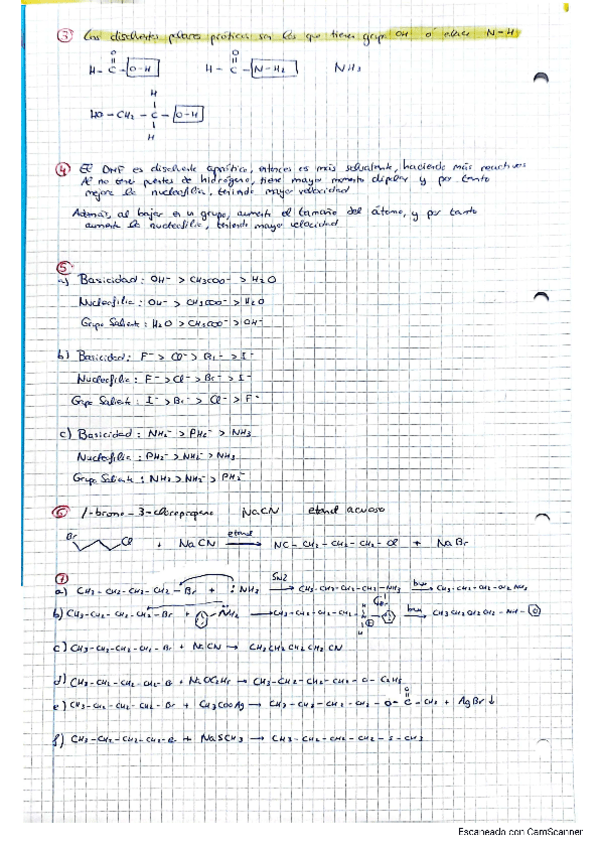 ③ Los disolventes polares próticos son los que tienen grupo OH ó enlace N-H
H - C - O-H    H - C - N-H₂    NH₃
HO - CH₂ - C - O-H
④ El DMF es disolvente aprótico, entonces es más solvatante, haciendo más reactivos
Al no tener puentes de hidrógeno, tiene mayor momento dipolar y por tanto
mejora la nucleofilia, teniendo mayor velocidad
Además, al bajar en un grupo, aumenta el tamaño del átomo, y por tanto
aumenta la nucleofilia, teniendo mayor velocidad
⑤
a) Basicidad: OH⁻ > CH₃COO⁻ > H₂O
Nucleofilia: OH⁻ > CH₃COO⁻ > H₂O
Grupo Saliente: H₂O > CH₃COO⁻ > OH⁻
b) Basicidad: F⁻ > Cl⁻ > Br⁻ > I⁻
Nucleofilia: F⁻ > Cl⁻ > Br⁻ > I⁻
Grupo Saliente: I⁻ > Br⁻ > Cl⁻ > F⁻
c) Basicidad: NH₂⁻ > PH₂⁻ > NH₃
Nucleofilia: PH₂⁻ > NH₂⁻ > NH₃
Grupo Saliente: NH₃ > NH₂⁻ > PH₂⁻
⑥ 1-bromo-3-cloropropano    NaCN    etanol acuoso
Br Cl + NaCN etanol → NC-CH₂-CH₂-CH₂-Cl + NaBr
⑦
a) CH₃-CH₂-CH₂-CH₂-Br + :NH₃ SN2 → CH₃-CH₂-CH₂-CH₂-NH₃ base → CH₃-CH₂-CH₂-CH₂NH₂
b) CH₃-CH₂-CH₂-CH₂-Br + NH₂ → CH₃-CH₂-CH₂-CH₂- base → CH₃CH₂CH₂CH₂-NH-
c) CH₃-CH₂-CH₂-CH₂-Br + NaCN → CH₃CH₂CH₂CH₂CN
d) CH₃-CH₂-CH₂-CH₂-Br + NaOC₂H₅ → CH₃-CH₂-CH₂-CH₂-O-C₂H₅
e) CH₃-CH₂-CH₂-CH₂-Br + CH₃COOAg → CH₃-CH₂-CH₂-CH₂-O-C-CH₃ + AgBr↓
f) CH₃-CH₂-CH₂-CH₂-Br + NaSCH₃ → CH₃-CH₂-CH₂-CH₂-S-CH₃
Escaneado con CamScanner